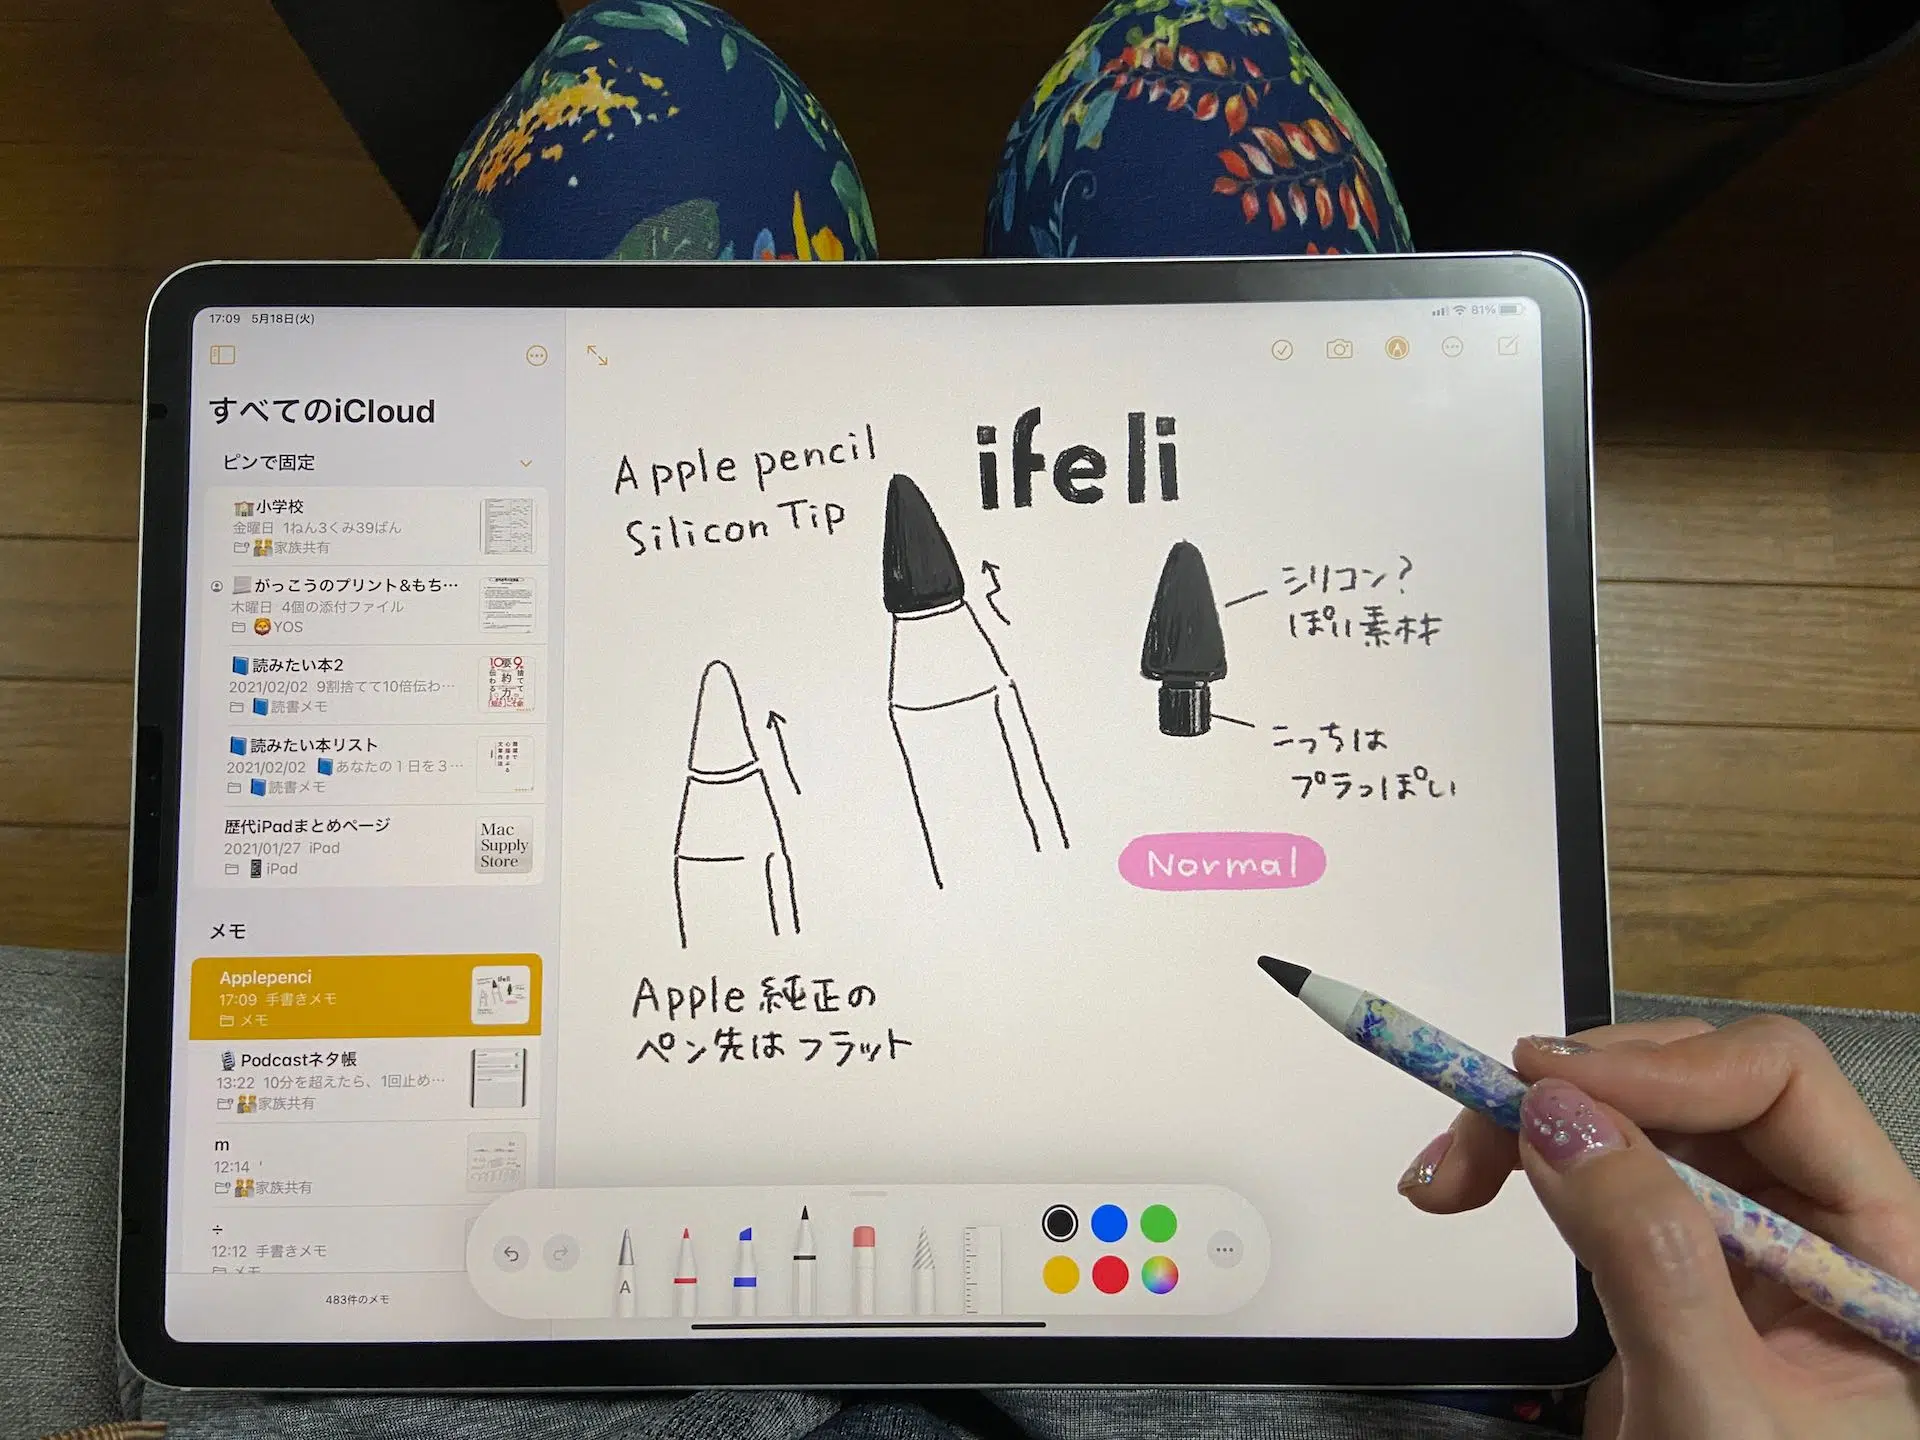 17:09 5月18日(火)
81%
すべてのiCloud
ピンで固定
小学校
金曜日 1ねん3くみ39ばん
家族共有
がっこうのプリント&もち…
木曜日 4個の添付ファイル
YOS
読みたい本2
2021/02/02 9割捨てて10倍伝わ…
読書メモ
読みたい本リスト
2021/02/02 あなたの1日を3…
読書メモ
歴代iPadまとめページ
2021/01/27 iPad
iPad
Mac
Supply
Store
メモ
Applepenci
17:09 手書きメモ
メモ
Podcastネタ帳
13:22 10分を超えたら、1回止め…
家族共有
m
12:14 '
家族共有
÷
12:12 手書きメモ
メモ
483件のメモ
Apple pencil
Silicon Tip
ifeli
シリコン?
ぽい素材
こっちは
プラっぽい
Normal
Apple 純正の
ペン先はフラット
A